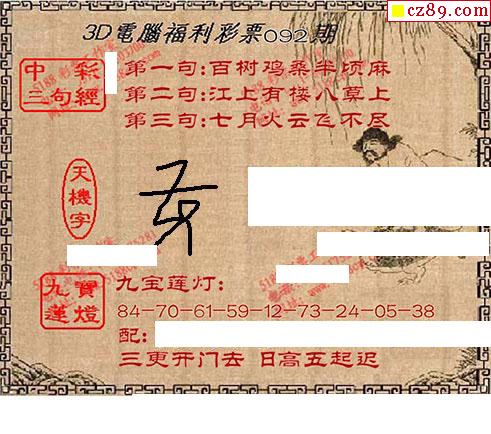 cz89.com
3D電腦福利彩票092期
中彩
三句經
第一句:百树鸡桑半顷麻
第二句:江上有楼八莫上
第三句:七月火云飞不尽
天機字
九寳
蓮燈
九宝莲灯:
84-70-61-59-12-73-24-05-38
配:
三更开门去 日高五起迟